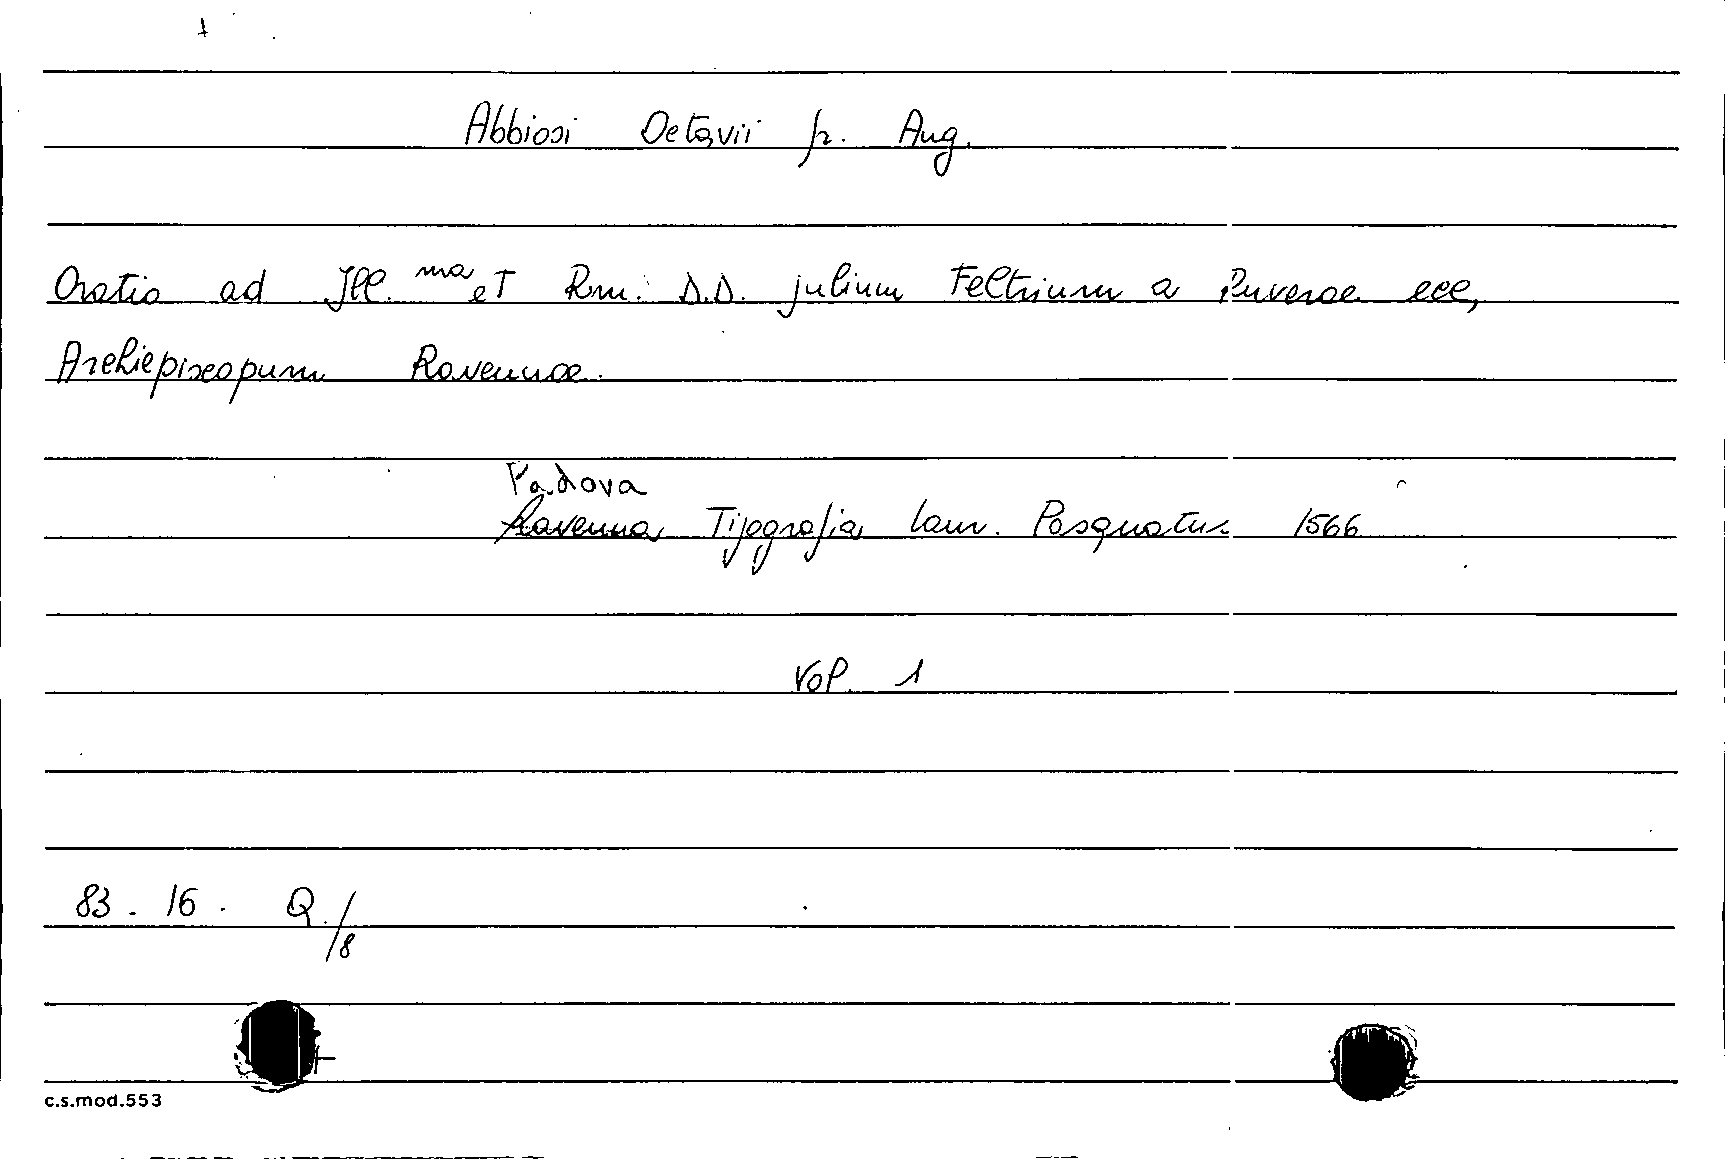 Abbiosi Octavii fr. Aug.
Oratio ad Ill.ma et Rm. D.D. Julium Feltrium a Ruveroe ecc,
Archiepiscopum Ravennoe.
Padova
Ravenna Tipografia Laur. Pasquatus 1566
Vol. 1
83. 16. Q./8
c.s.mod.553